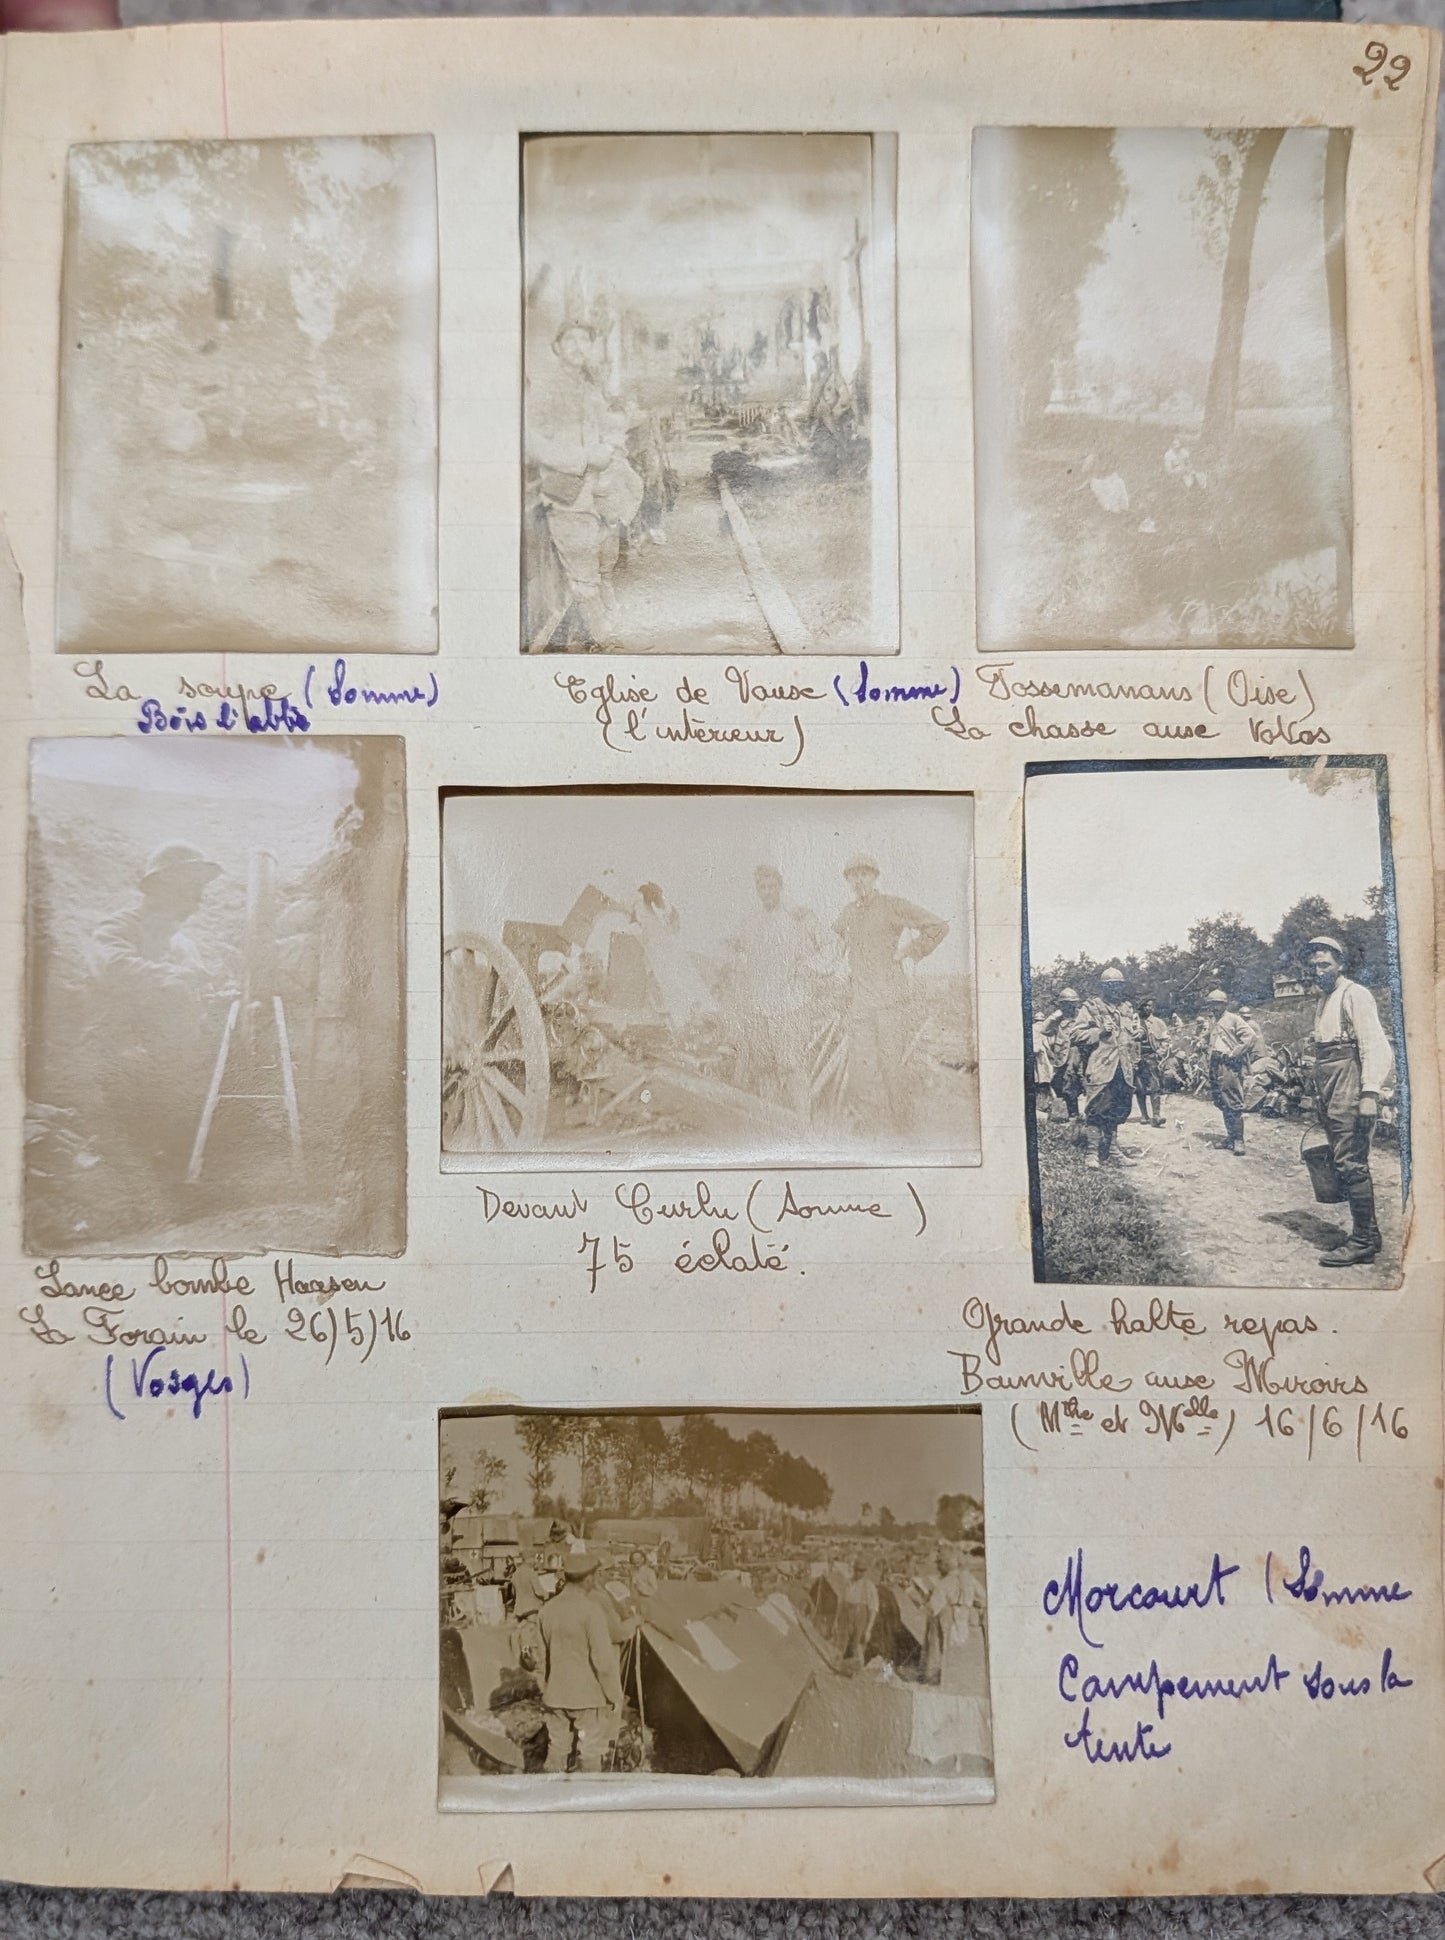 22
La soupe (Somme)
Bois l'abbé
Eglise de Vaux (Somme)
(l'intérieur)
Tossemanans (Oise)
La chasse aux totos
Lance bombe Haasen
La Forain le 26/5/16
(Vosges)
Devant Curlu (Somme)
75 éclaté.
Grande halte repas.
Bainville aux Miroirs
(Mthe et Melle) 16/6/16
Morcourt (Somme
Campement sous la
tente